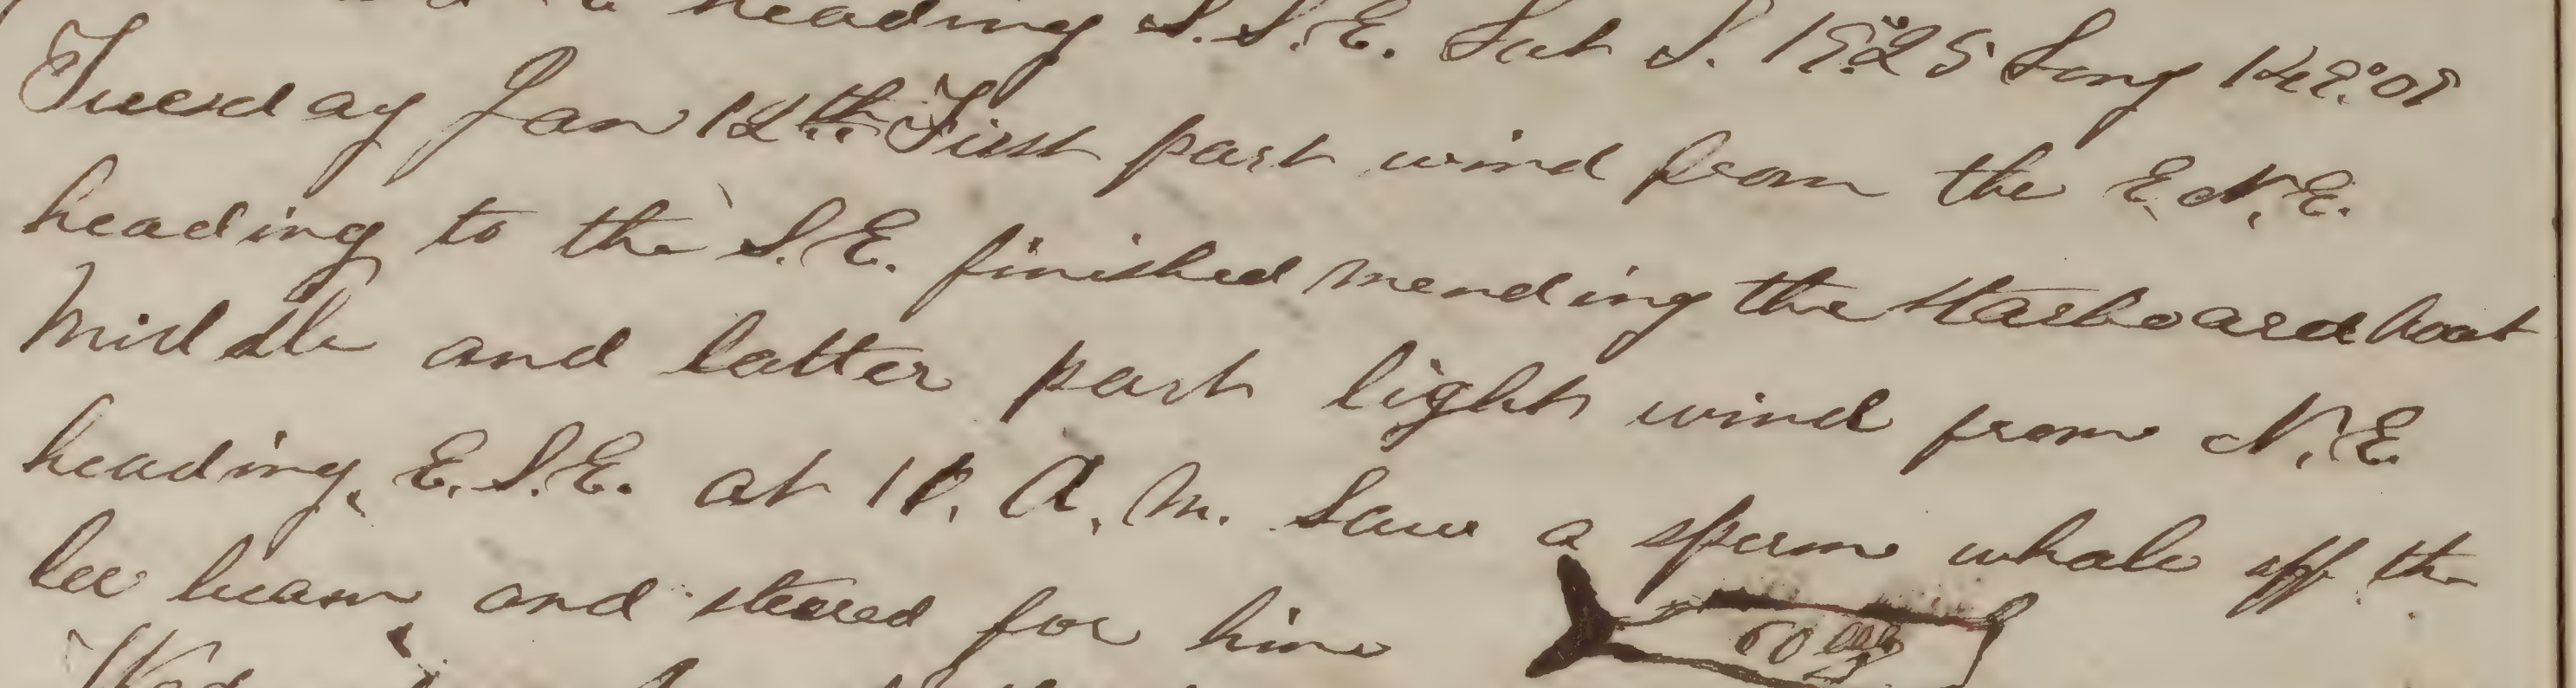 heading S.S.E. Lat S. 19.25 Long
Tuesday Jan 12th First part wind from the E.N.E.
heading to the S.E. finished mending the Starboard boat
Middle and latter part light wind from N.E.
heading E.S.E. at A.M. Saw a sperm whale off the
lee beam and steered for him
60 bbls